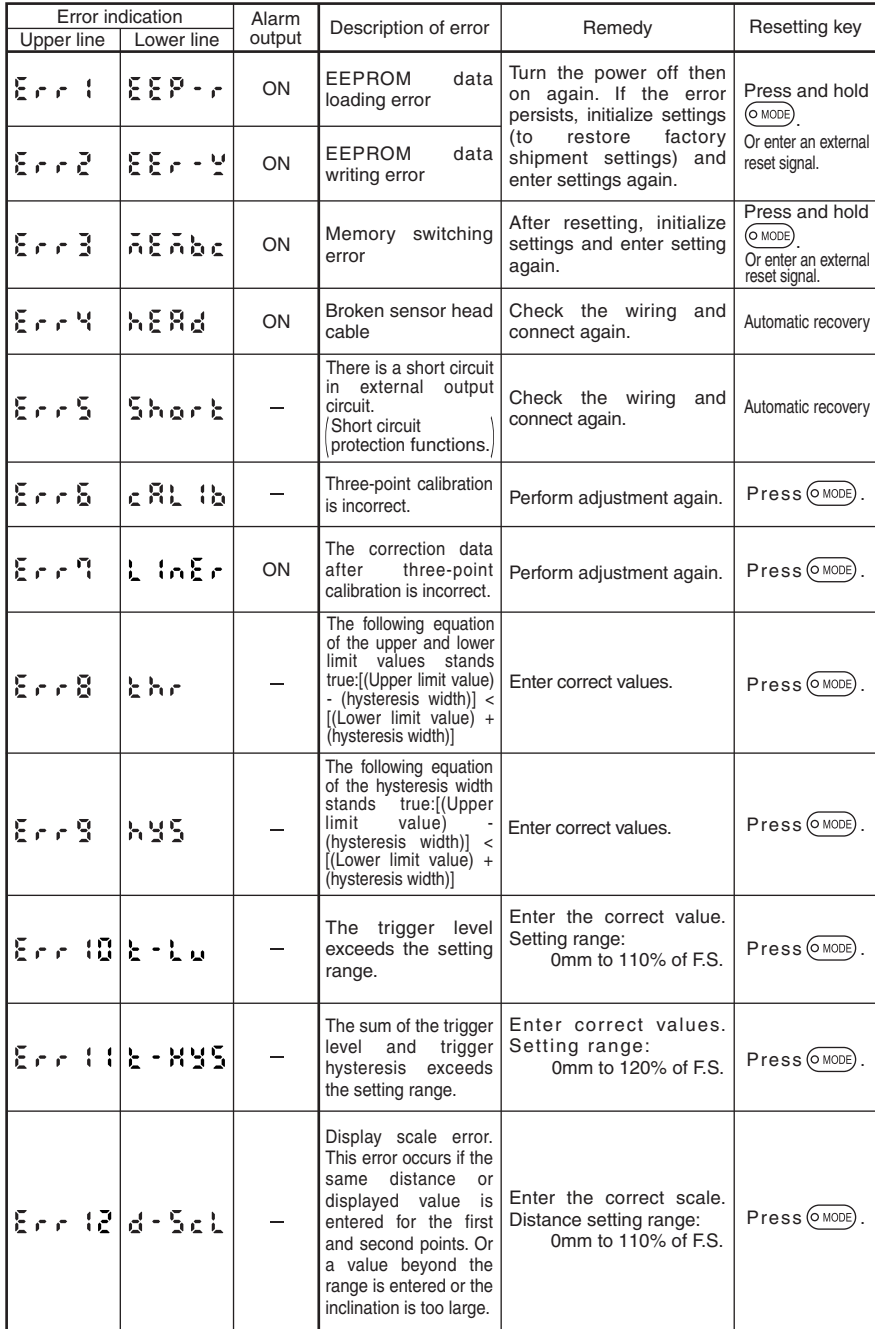 Error indication
Upper line
Lower line
Alarm
output
Description of error
Remedy
Resetting key
Err1
EEP-r
ON
EEPROM data
loading error
Turn the power off then
on again. If the error
persists, initialize settings
(to restore factory
shipment settings) and
enter settings again.
Press and hold
MODE.
Or enter an external
reset signal.
Err2
EEr-Y
ON
EEPROM data
writing error
Err3
ON
Memory switching
error
After resetting, initialize
settings and enter setting
again.
Press and hold
MODE.
Or enter an external
reset signal.
Err4
hEAd
ON
Broken sensor head
cable
Check the wiring and
connect again.
Automatic recovery
Err5
Short
–
There is a short circuit
in external output
circuit.
(Short circuit
protection functions.)
Check the wiring and
connect again.
Automatic recovery
Err6
cAL1b
–
Three-point calibration
is incorrect.
Perform adjustment again.
Press MODE.
Err7
L1nEr
ON
The correction data
after three-point
calibration is incorrect.
Perform adjustment again.
Press MODE.
Err8
thr
–
The following equation
of the upper and lower
limit values stands
true:[(Upper limit value)
- (hysteresis width)] <
[(Lower limit value) +
(hysteresis width)]
Enter correct values.
Press MODE.
Err9
hYS
–
The following equation
of the hysteresis width
stands true:[(Upper
limit value) -
(hysteresis width)] <
[(Lower limit value) +
(hysteresis width)]
Enter correct values.
Press MODE.
Err10
t-Lu
–
The trigger level
exceeds the setting
range.
Enter the correct value.
Setting range:
0mm to 110% of F.S.
Press MODE.
Err11
t-HYS
–
The sum of the trigger
level and trigger
hysteresis exceeds
the setting range.
Enter correct values.
Setting range:
0mm to 120% of F.S.
Press MODE.
Err12
d-ScL
–
Display scale error.
This error occurs if the
same distance or
displayed value is
entered for the first
and second points. Or
a value beyond the
range is entered or the
inclination is too large.
Enter the correct scale.
Distance setting range:
0mm to 110% of F.S.
Press MODE.